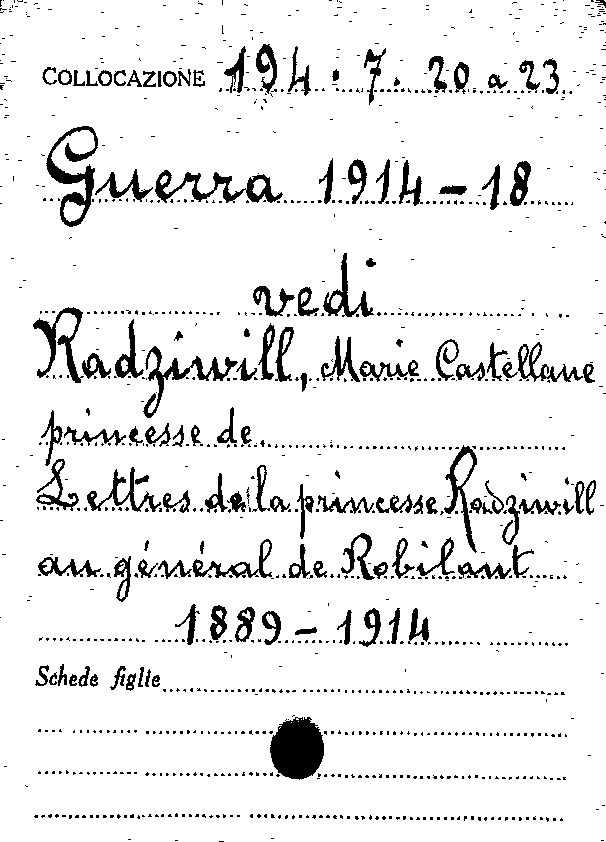 COLLOCAZIONE 194.7.20 a 23
Guerra 1914-18
vedi
Radziwill, Marie Castellane
princesse de.
Lettres de la princesse Radziwill
au général de Robilant
1889-1914
Schede figlie